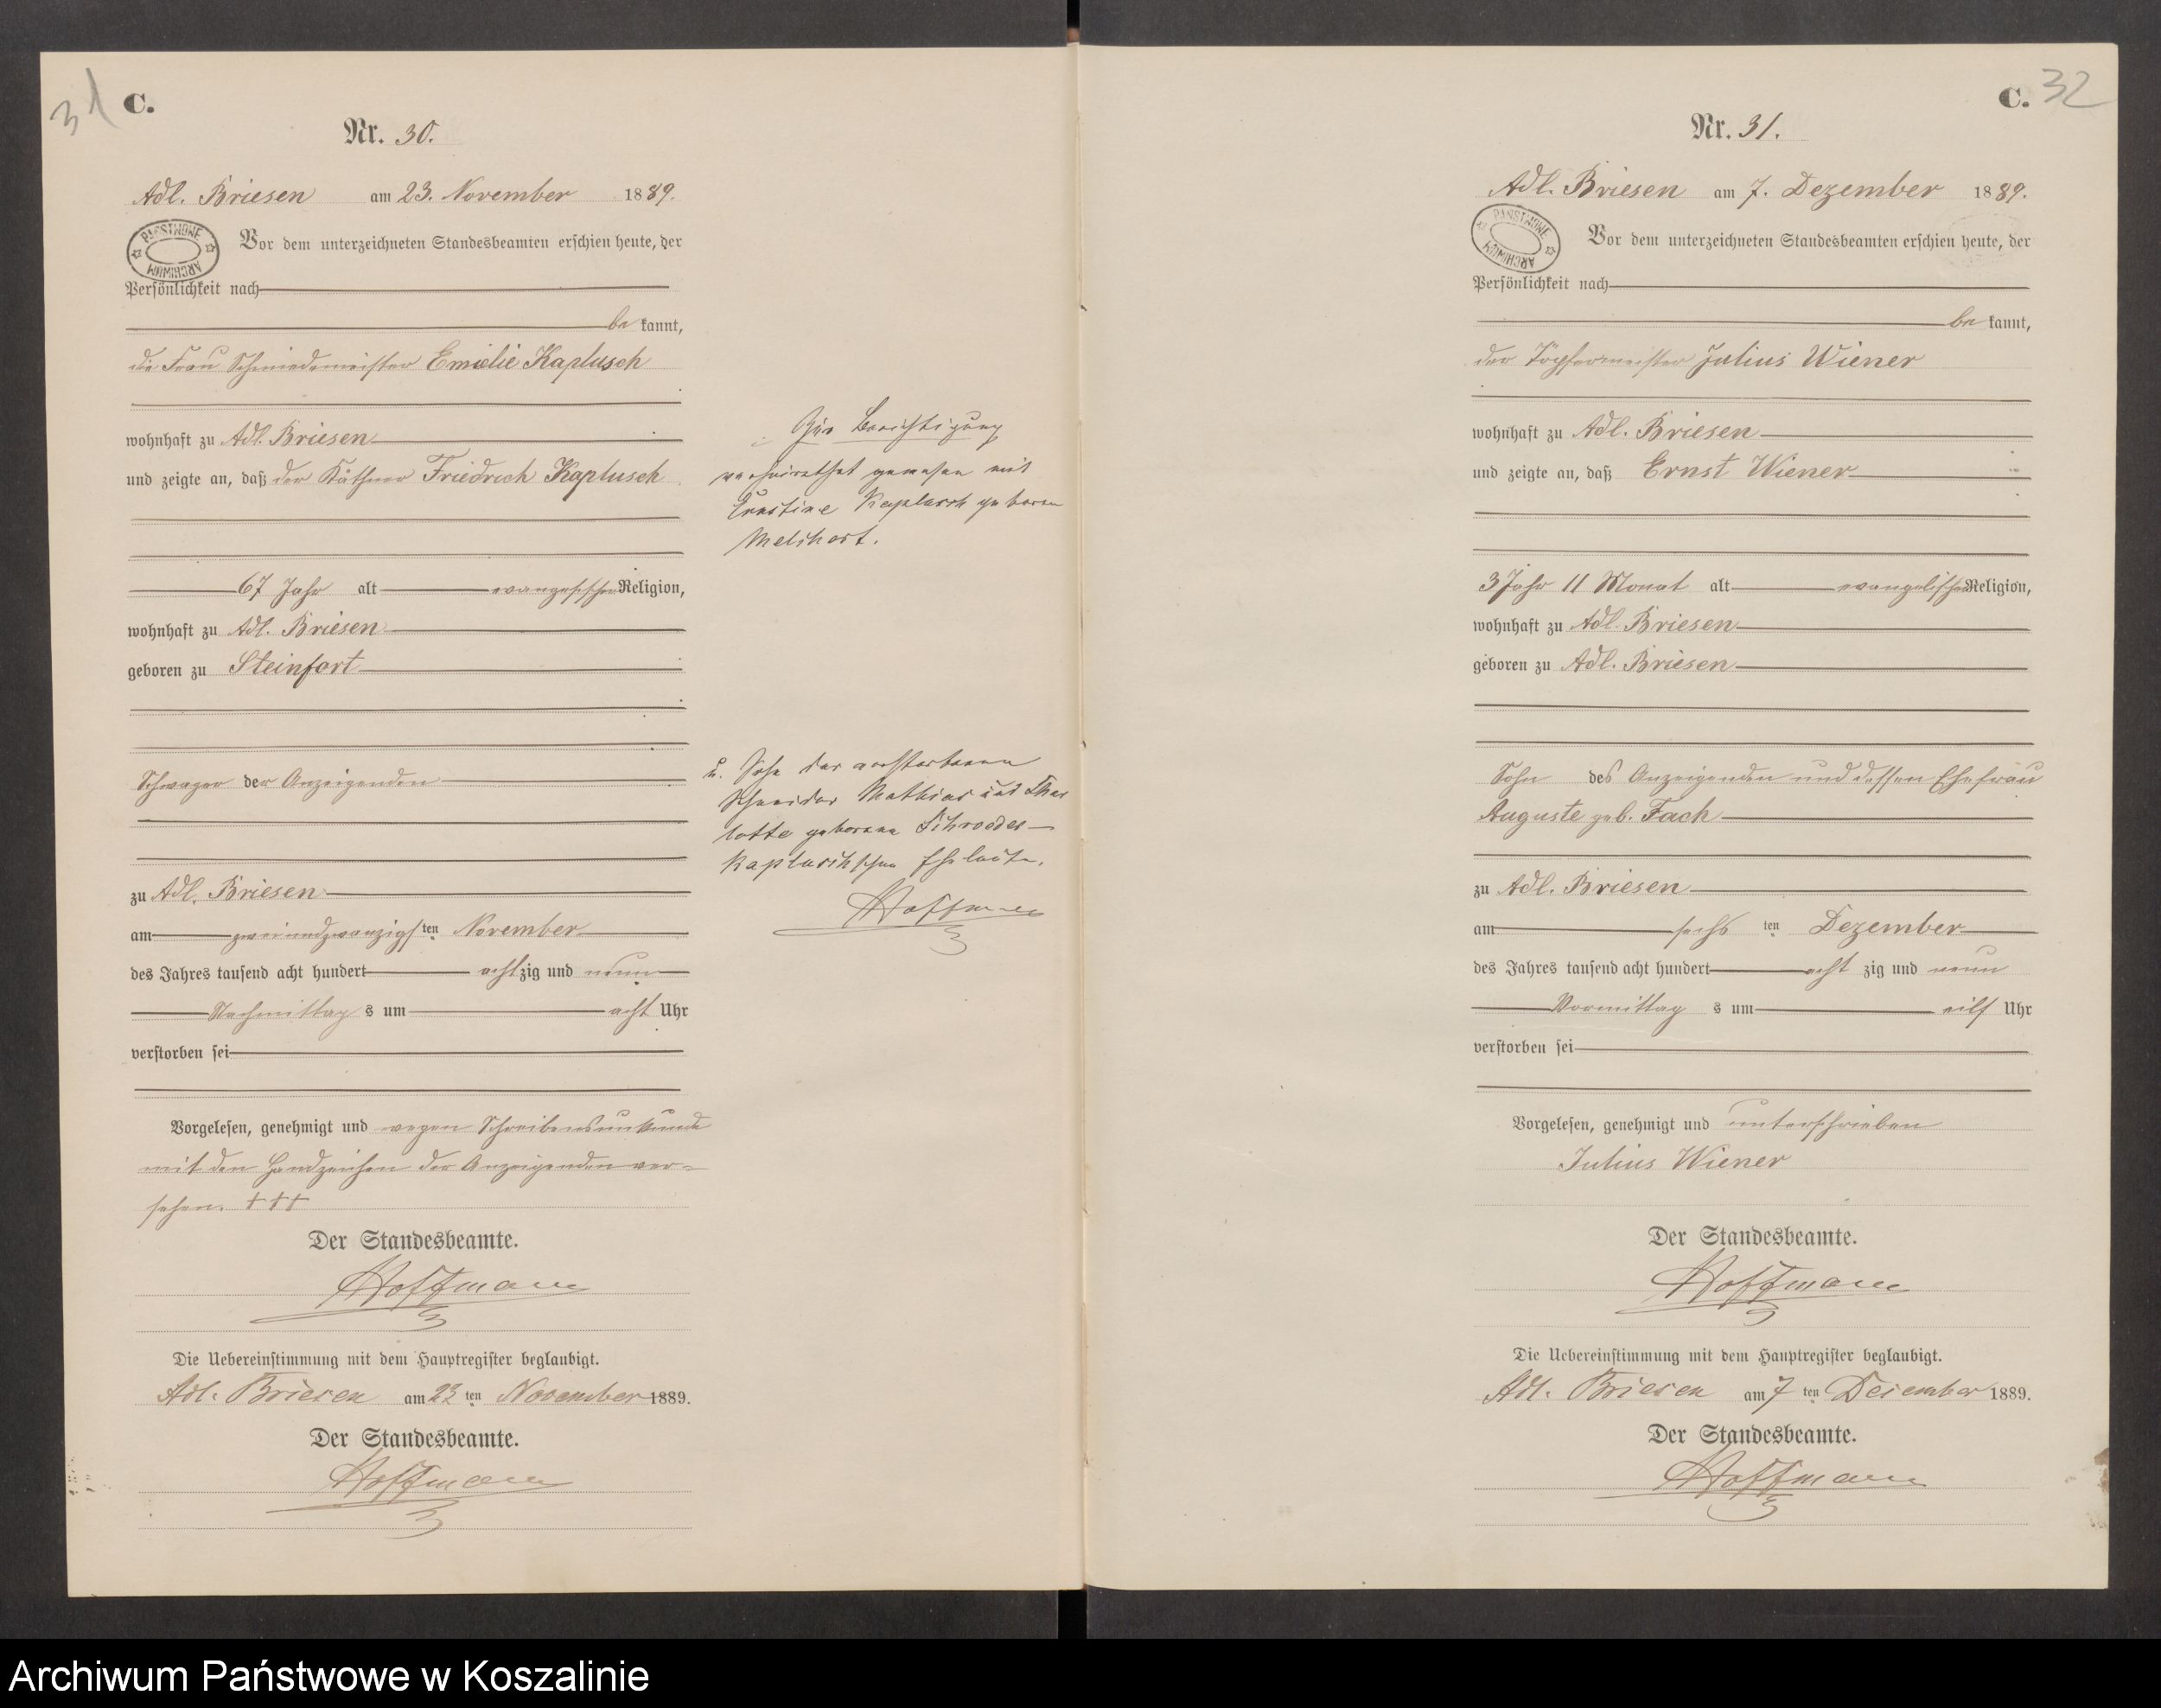 31
C.
Nr. 30.
Adl. Briesen am 23. November 1889.
PAŃSTWOWE ARCHIWUM
Vor dem unterzeichneten Standesbeamten erschien heute, der
Persönlichkeit nach
be kannt,
die Frau Schmiedemeister Emielie Kaplusch
wohnhaft zu Adl. Briesen
und zeigte an, daß der Käthner Friedrich Kaplusch
67 Jahr alt evangelischer Religion,
wohnhaft zu Adl. Briesen
geboren zu Steinfort
Schwager der Anzeigenden
zu Adl. Briesen
am zweiundzwanzigsten November
des Jahres tausend acht hundert achtzig und neun
Nachmittags um acht Uhr
verstorben sei
Vorgelesen, genehmigt und wegen Schreibensunkunde
mit den Handzeichen der Anzeigenden ver-
sehen. +++
Der Standesbeamte.
Hoffmann
Die Uebereinstimmung mit dem Hauptregister beglaubigt.
Adl. Briesen am 23ten November 1889.
Der Standesbeamte.
Hoffmann
Zur Berichtigung
verheirathet gewesen mit
Ernstine Kaplusch geboren
Melchert.
u. Sohn der verstorbenen
Schneider Mathias und Char
lotte geborene Schroeder-
Kapluschschen Eheleute.
Hoffmann
C. 32
Nr. 31.
Adl. Briesen am 7. Dezember 1889.
PAŃSTWOWE ARCHIWUM
Vor dem unterzeichneten Standesbeamten erschien heute, der
Persönlichkeit nach
be kannt,
der Töpfermeister Julius Wiener
wohnhaft zu Adl. Briesen
und zeigte an, daß Ernst Wiener
3 Jahr 11 Monat alt evangelischer Religion,
wohnhaft zu Adl. Briesen
geboren zu Adl. Briesen
Sohn des Anzeigenden und dessen Ehefrau
Auguste geb. Fach
zu Adl. Briesen
am sechsten Dezember
des Jahres tausend acht hundert acht zig und neun
Vormittags um eilf Uhr
verstorben sei
Vorgelesen, genehmigt und unterschrieben
Julius Wiener
Der Standesbeamte.
Hoffmann
Die Uebereinstimmung mit dem Hauptregister beglaubigt.
Adl. Briesen am 7ten Dezember 1889.
Der Standesbeamte.
Hoffmann
Archiwum Państwowe w Koszalinie